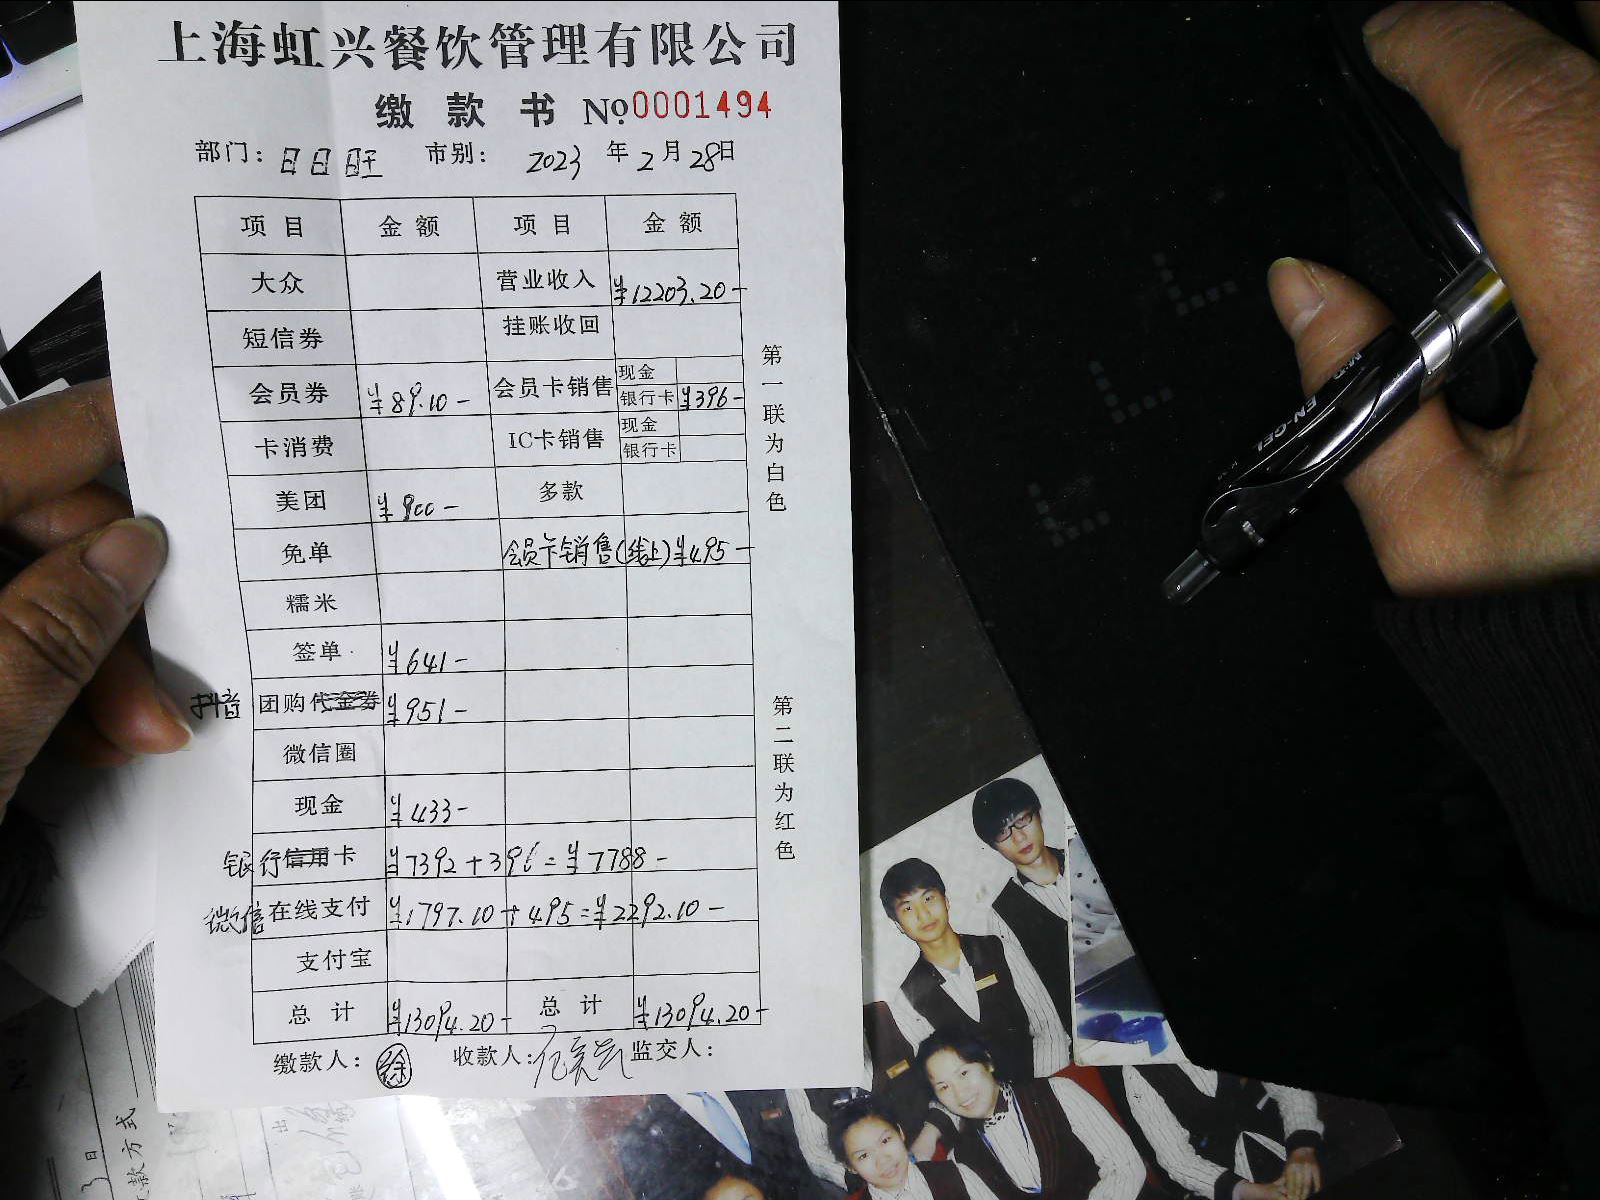 上海虹兴餐饮管理有限公司
缴款书 №0001494
部门：日日旺 市别： 2023年2月28日
项目 金额 项目 金额
大众 营业收入 ¥12203.20-
短信券 挂账收回
会员券 ¥89.10- 会员卡销售 现金
银行卡 ¥396-
卡消费 IC卡销售 现金
银行卡
美团 ¥900- 多款
免单 会员卡销售(线上) ¥495-
糯米
签单 ¥641-
抖音 团购代金券 ¥951-
微信圈
现金 ¥433-
银行信用卡 ¥7392+396=¥7788-
微信在线支付 ¥1797.10+495=¥2292.10-
支付宝
总计 ¥13094.20- 总计 ¥13094.20-
缴款人：徐 收款人： 监交人：
第一联为白色
第二联为红色
M&P
EN-GEL
3日
款方式